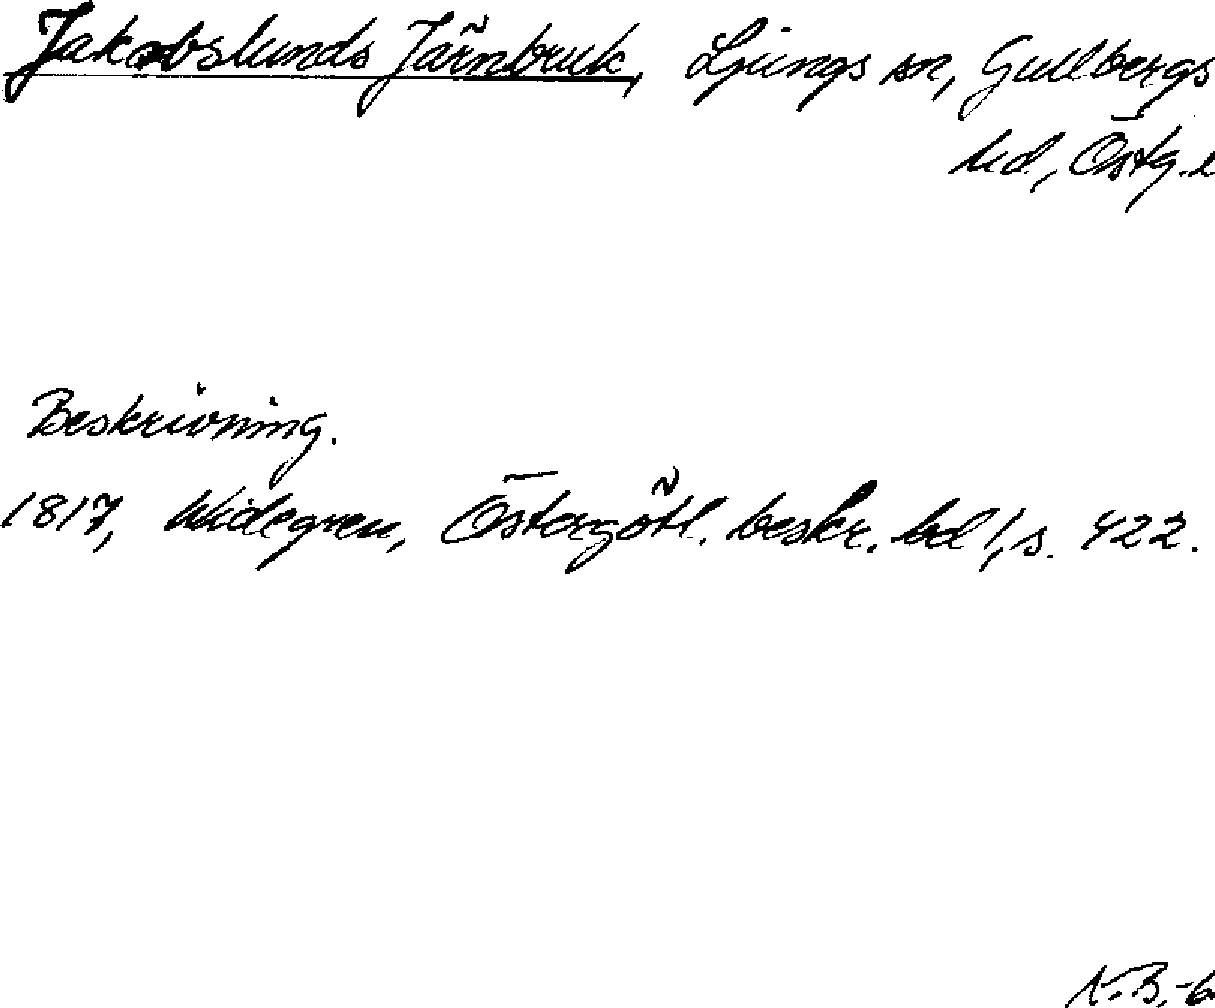 Jakobslunds Järnbruk, Ljungs sn, Gullbergs
hd, Östg. l
Beskrivning.
1817, Widegren, Östergötl. beskr. bd 1, s. 422.
N.B.-6